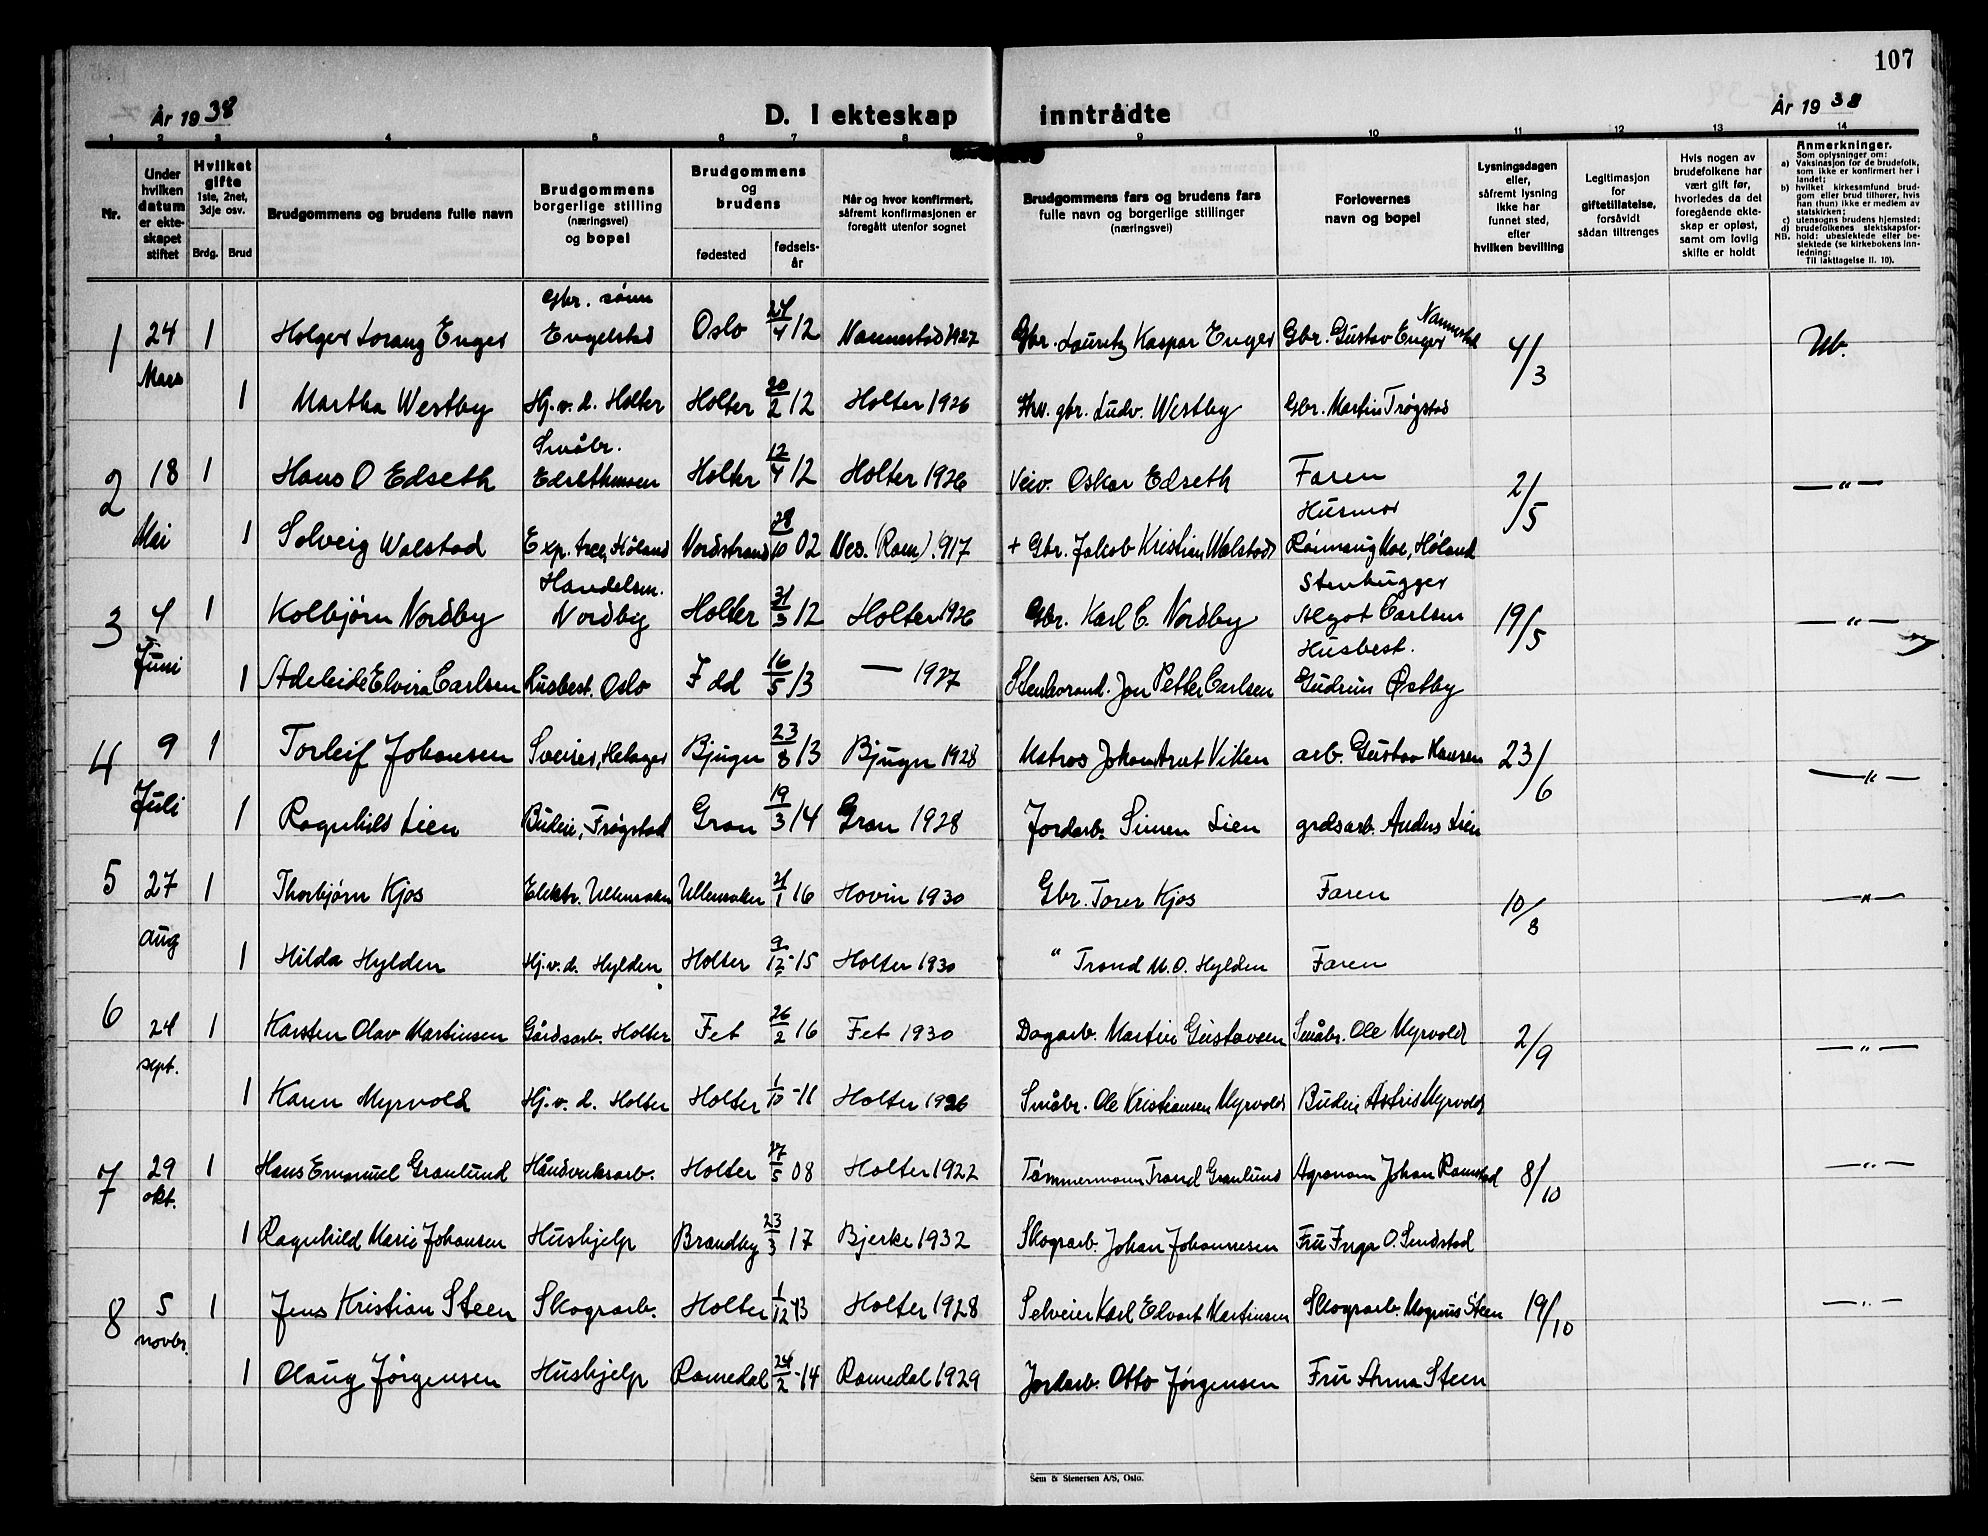 107
År 1938
D. I ekteskap inntrådte
År 1938
1 2 3 4 5 6 7 8 9 10 11 12 13 14
Nr.
Under hvilken datum er ekte-skapet stiftet
Hvilket gifte 1ste, 2net, 3dje osv.
Brdg. Brud
Brudgommens og brudens fulle navn
Brudgommens borgerlige stilling (næringsvei) og bopel
Brudgommens og brudens
fødested
fødsels-år
Når og hvor konfirmert, såfremt konfirmasjonen er foregått utenfor sognet
Brudgommens fars og brudens fars fulle navn og borgerlige stillinger (næringsvei)
Forlovernes navn og bopel
Lysningsdagen eller, såfremt lysning ikke har funnet sted, efter hvilken bevilling
Legitimasjon for giftetillatelse, forsåvidt sådan tiltrenges
Hvis nogen av brudefolkene har vært gift før, hvorledes da det foregående ekte-skap er opløst, samt om lovlig skifte er holdt
Anmerkninger.
Som oplysninger om:
a) Vaksinasjon for de brudefolk, som ikke er konfirmert her i landet;
b) hvilket kirkesamfund brud-gom eller brud tilhører, hvis han (hun) ikke er medlem av statskirken;
c) utensogns brudens hjemsted;
d) brudefolkenes slektskapsfor-hold: ubeslektede eller be-slektede (se kirkebokens inn-ledning:
NB. Til iakttagelse II. 10).
1 24 Mars 1 Holger Lorang Enger Gbr. sønn Engelstad Oslo 24/4 12 Nannestad 1927 Gbr. Lauritz Kaspar Enger Gbr. Gustav Enger Nannestad 4/3 Ub.
1 Martha Westby Hj.v.d. Holter Holter 20/2 12 Holter 1926 gbr. Ludv. Westby Gbr. Martin Trøgstad
2 18 Mai 1 Hans O Edseth Småbr. Holter 12/4 12 Holter 1926 Veiv. Oskar Edseth Faren 2/5 — " —
1 Solveig Walstad Exp. Høland Nordstrand 28/10 02 Nes. (Rom). 917 + Gbr. Jakob Kristian Walstad Husmor Rønnaug Moe, Høland
3 4 Juni 1 Kolbjørn Nordby Handelsm. Nordby Holter 31/3 12 Holter 1926 Gbr. Karl C. Nordby Stenhugger Algot Carlsen 19/5 — " —
1 Adeleide Elvira Carlsen Husbest. Oslo Idd 16/5 13 — 1927 Jon Petter Carlsen Husbest. Gudrun Østby
4 9 Juli 1 Torleif Johansen Sveiser, Bjugn 23/8 13 Bjugn 1928 Matros Johan Arnt Viken arb. Gustav Hansen 23/6 — " —
1 Ragnhild Lien Budeie, Frøgstad Gran 19/3 14 Gran 1928 Jordarb. Simen Lien grdsarb. Anders Lien
5 27 aug 1 Thorbjørn Kjos Elektr. Ullensaker Ullensaker 21/1 16 Hovin 1930 Gbr. Torer Kjos Faren 10/8 — " —
1 Hilda Hylden Hj.v.d. Hylden Holter 9/12-15 Holter 1930 " Trond M.O. Hylden Faren
6 24 sept. 1 Karsten Olav Martinsen Gårdsarb. Holter Fet 26/2 16 Fet 1930 Dagarb. Martin Gustavsen Småbr. Ole Myrvold 2/9 — " —
1 Karen Myrvold Hj.v.d. Holter Holter 1/10-11 Holter 1926 Småbr. Ole Kristiansen Myrvold Budeie Astrid Myrvold
7 29 okt. 1 Hans Emanuel Granlund Håndverksarb. Holter 27/5 08 Holter 1922 Tømmermann Trond Granlund Agronom Johan Ramstad 8/10 — " —
1 Ragnhild Marie Johansen Hushjelp Brandby 23/3 17 Bjerke 1932 Skogsarb. Johan Johannesen Fru Inga O. Sundstad
8 5 novbr. 1 Jens Kristian Steen Skogsarb. Holter 1/12 13 Holter 1928 Selveier Karl Edvart Martinsen Skogsarb. Magnus Steen 19/10 — " —
1 Olaug Jørgensen Hushjelp Romedal 24/2-14 Romedal 1929 Jordarb. Otto Jørgensen Fru Anna Steen
Sem & Stenersen A/S, Oslo.